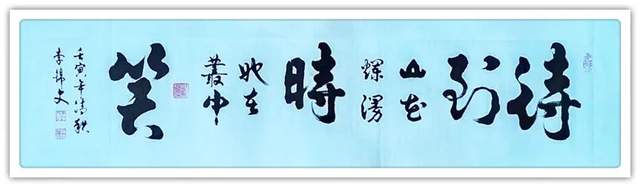 待到
山花
爛漫
時
她在
叢中
笑
壬寅年秋
李文